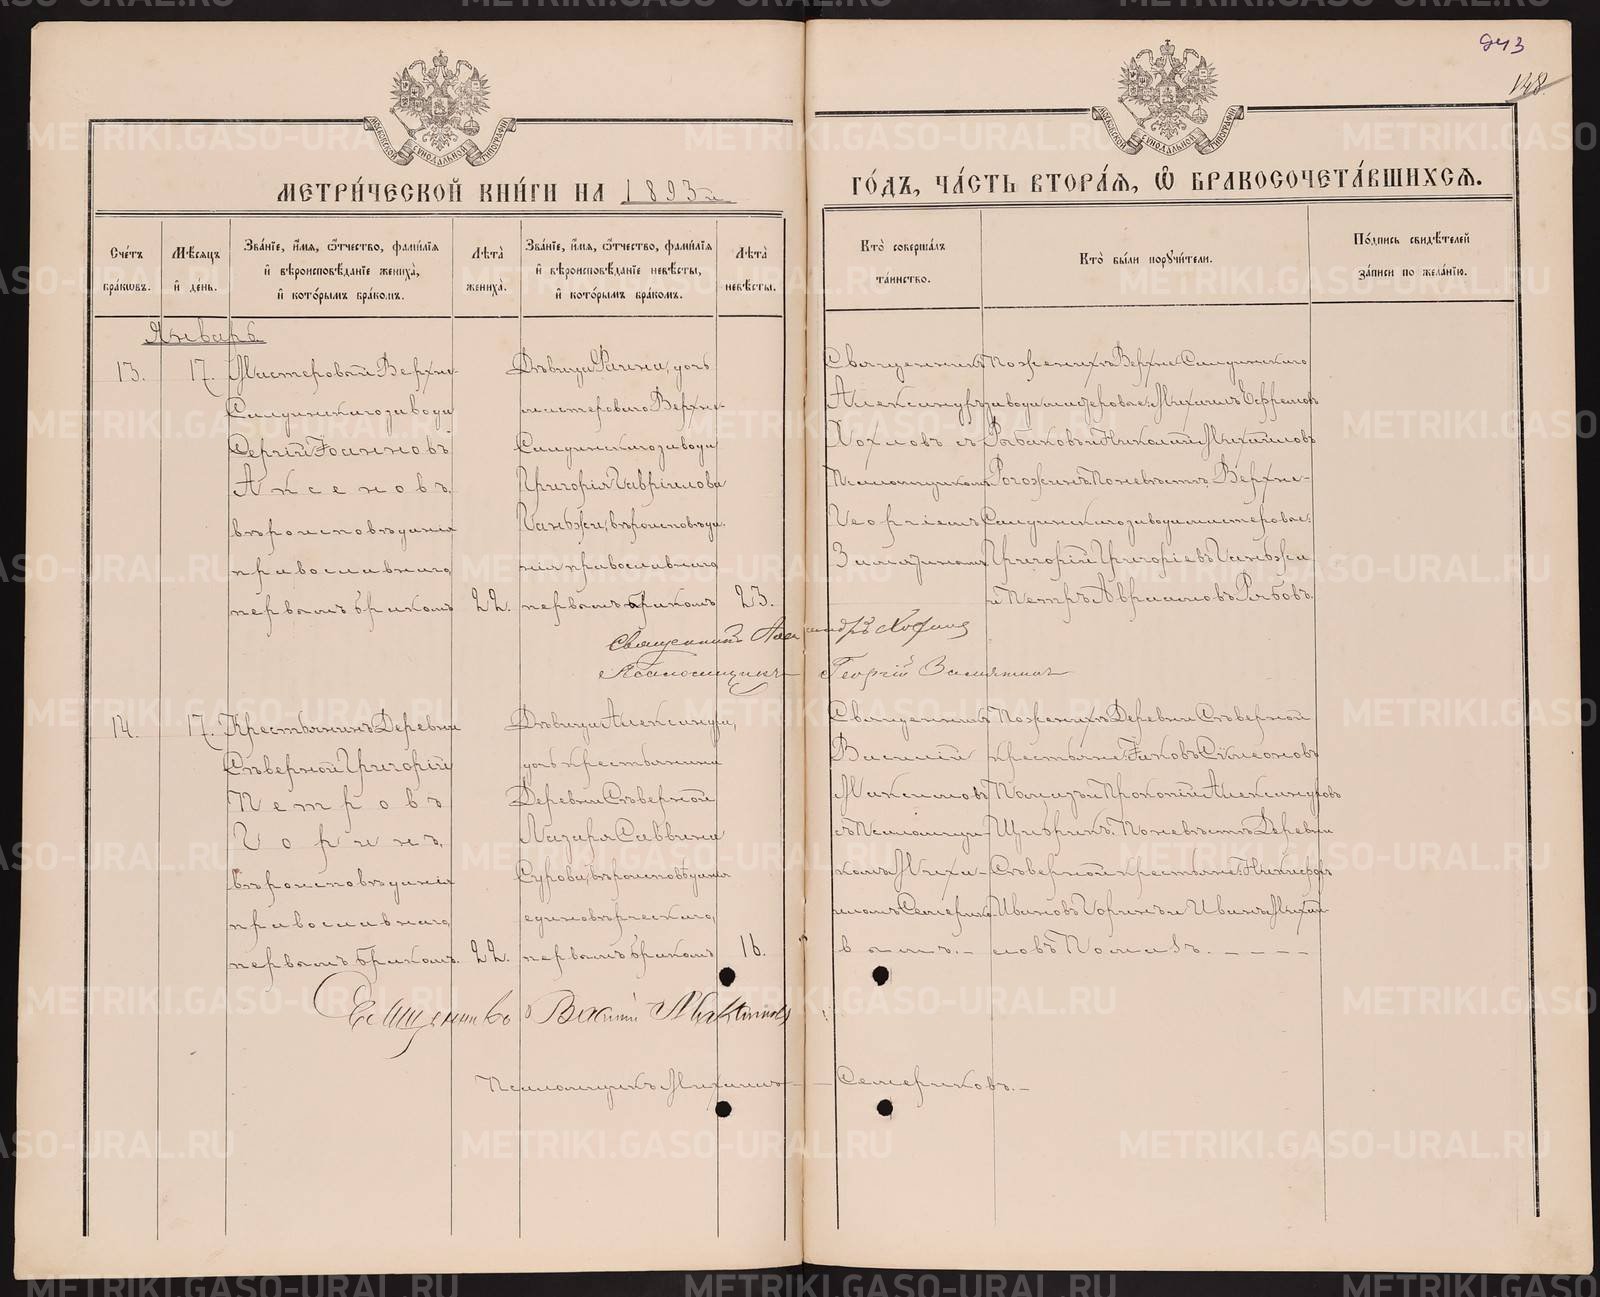 943
148.
МОСКОВСКОЙ СѴНОДАЛЬНОЙ ТИПОГРАФІИ
МЕТРИ́ЧЕСКОЙ КНИ́ГИ НА 1893й
ГО́ДЪ, ЧА́СТЬ ВТОРА́Я, Ѽ БРАКОСОЧЕТА́ВШИХСЯ.
Сче́тъ бра́кѡвъ.
Мѣ́сяцъ и҆ де́нь.
Зва́нїе, и҆́мя, ѻ҆́тчество, фами́лїя и҆ вѣроисповѣ́данїе жениха̀, и҆ кото́рымъ бра́комъ.
Лѣ́та жениха̀.
Зва́нїе, и҆́мя, ѻ҆́тчество, фами́лїя и҆ вѣроисповѣ́данїе невѣ́сты, и҆ кото́рымъ бра́комъ.
Лѣ́та невѣ́сты.
Кто̀ соверша́лъ та́инство.
Кто̀ бы́ли порꙋчи́тели.
По́дпись свидѣ́телей за́писи по жела́нїю.
Январь
13.
17.
Мастеровый Верхне-
Салдинскаго завода
Сергій Іоанновъ
Аксеновъ,
вѣроисповѣданія
православнаго,
первымъ бракомъ
22.
Дѣвица Фаина, дочь
мастероваго Верхне-
Салдинскаго завода
Григорія Гаврілова
Ганьжи, вѣроисповѣда-
нія православнаго,
первымъ бракомъ
23.
Священникъ
Александръ
Хохловъ съ
Псаломщикомъ
Георгіемъ
Замятинымъ
По женихѣ: Верхне-Салдинскаго
завода мастеровые: Михаилъ Ефремовъ
Рыбаковъ и Николай Михайловъ
Рогожинъ. По невѣстѣ: Верхне-
Салдинскаго завода мастеровые:
Григорій Григоріевъ Ганьжа
и Петръ Авраамовъ Рябовъ.
Священникъ Александръ Хохловъ
Псаломщикъ Георгій Замятинъ
14.
17.
Крестьянинъ Деревни
Сѣверной Григорій
Петровъ
Горинъ,
вѣроисповѣданія
православнаго,
первымъ бракомъ.
22.
Дѣвица Александра,
дочь крестьянина
Деревни Сѣверной
Лазаря Саввина
Сурова, вѣроисповѣданія
единовѣрческаго,
первымъ бракомъ
16.
Священникъ
Василій
Максимовъ
съ Псаломщи-
комъ Миха-
иломъ Семерико-
вымъ. —
По женихѣ: Деревни Сѣверной
крестьяне: Іаковъ Симеоновъ
и Прокопій Александровъ
По невѣстѣ: Деревни
Сѣверной крестьяне: Никифоръ
Ивановъ Горинъ и Иванъ Михай-
ловъ
Священникъ Василій Максимовъ
Псаломщикъ Михаилъ Семериковъ. —
METRIKI.GASO-URAL.RU